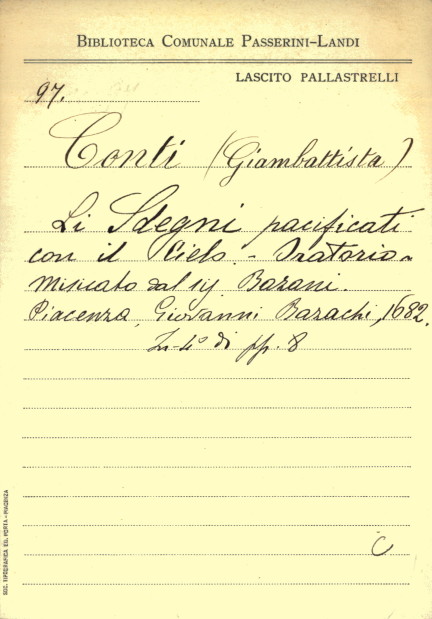 BIBLIOTECA COMUNALE PASSERINI-LANDI
LASCITO PALLASTRELLI
97.
Conti (Giambattista)
Li Sdegni pacificati
con il Cielo. - Oratorio -
Musicato dal sig Bazani.
Piacenza, Giovanni Bazachi, 1682.
In-4° di pp. 8
C
SOC. TIPOGRAFICA ED. PORTA - PIACENZA